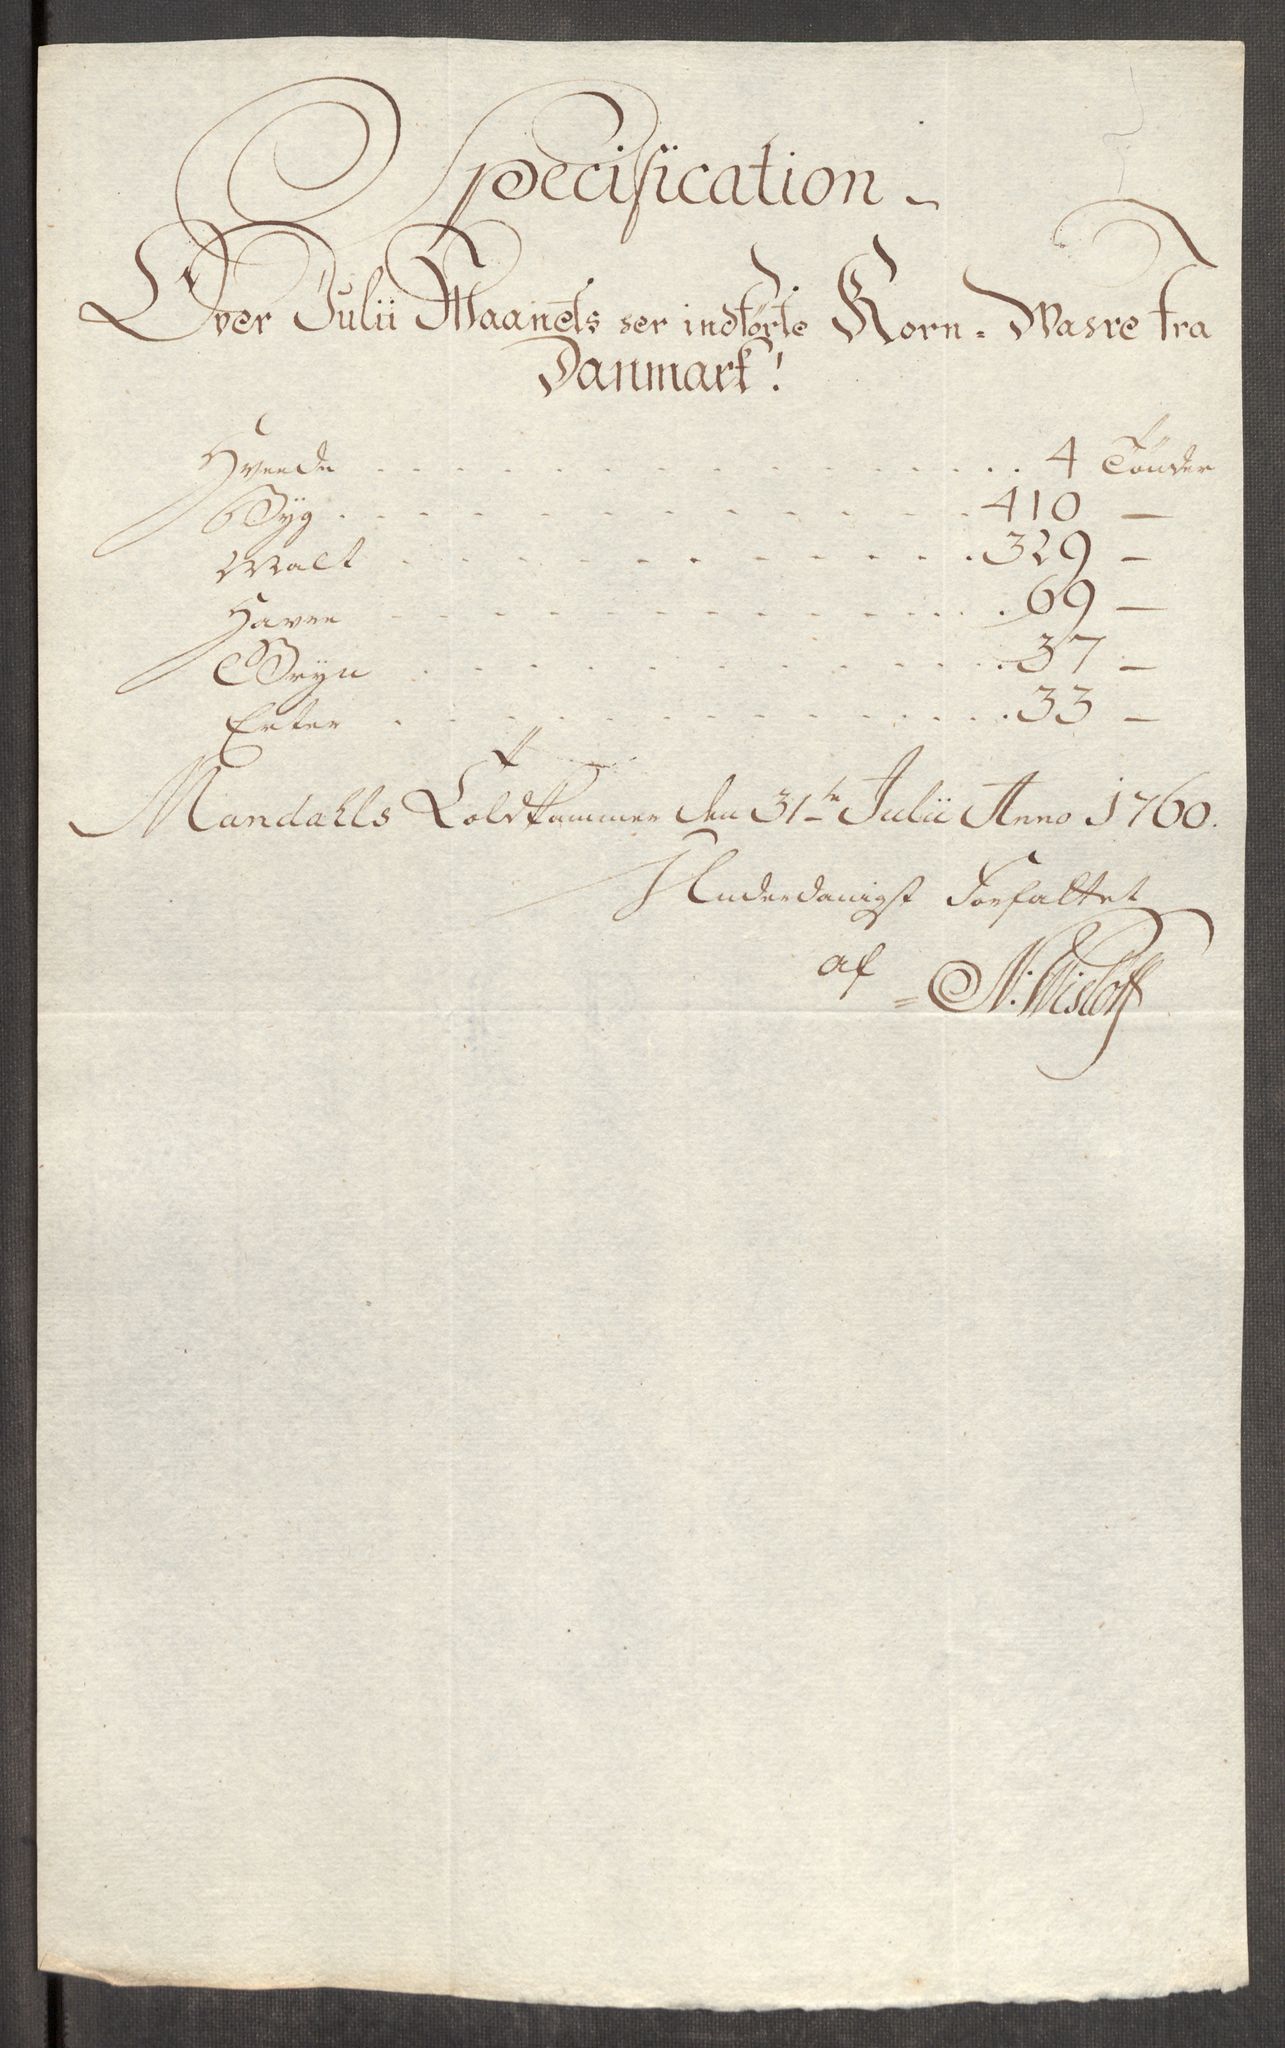 Specification
Over Julii Maanets her indførte Korn-Wahre fra
Danmark!
Hveede . . . 4 Tønder
Byg . . . 410 —
Malt . . . 329 —
Havre . . . 69 —
Gryn . . . 37 —
Erter . . . 33 —
Mandahls Toldkammer den 31te Julii Anno 1760.
Underdanigst Forfattet
af N: Wisløff